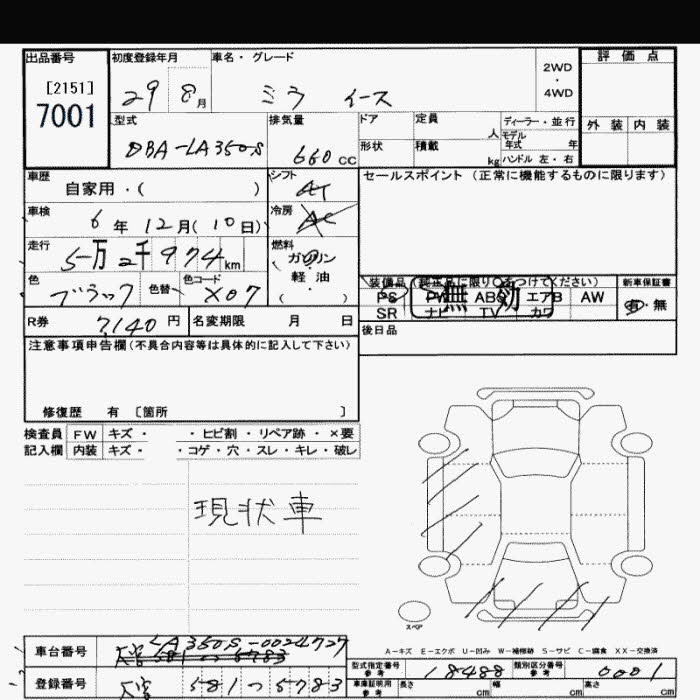 出品番号
[2151]
7001
初度登録年月
29 8月
車名・グレード
ミラ イース
2WD
・
4WD
評価点
外装 内装
型式
DBA-LA350S
排気量
660 CC
ドア
定員
人
形状
積載
kg
ディーラー・並行
モデル年式 年
ハンドル 左・右
車歴
自家用・( )
シフト
AT
セールスポイント (正常に機能するものに限ります)
車検
6年 12月(10日)
冷房
AC
走行
5万2千974km
燃料
ガソリン
軽・油
( )
色
ブラック
色替
色コード
X07
装備品(純正品に限り○をつけてください)
PS PW ABS エアB AW
SR ナビ TV カワ
無効
新車保証書
有・無
R券
7140円
名変期限 月 日
後日品
注意事項申告欄(不具合内容等は具体的に記入して下さい)
修復歴 有 〔箇所 〕
検査員
記入欄
FW キズ・ ・ヒビ割・リペア跡・×要
内装 キズ・ ・コゲ・穴・スレ・キレ・破レ
現状車
スペア
A-キズ E-エクボ U-凹み W-補修跡 S-サビ C-腐食 XX-交換済
車台番号
LA350S-0024727
登録番号
581 つ 5783
型式指定番号
参考
18488
類別区分番号
参考
0001
車庫証明用
参考
長さ cm 幅 cm 高さ cm